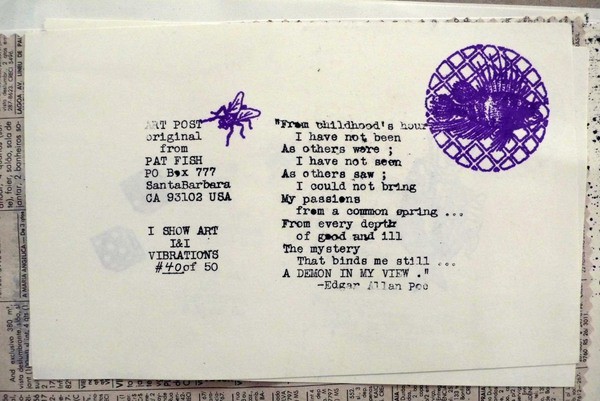 ART POST
original
from
PAT FISH
PO Box 777
SantaBarbara
CA 93102 USA
I SHOW ART
I&I
VIBRATIONS
#40 of 50
"From childhood's hour
I have not been
As others were ;
I have not seen
As others saw ;
I could not bring
My passions
from a common spring ...
From every depth
of good and ill
The mystery
That binds me still ...
A DEMON IN MY VIEW ."
-Edgar Allan Poe